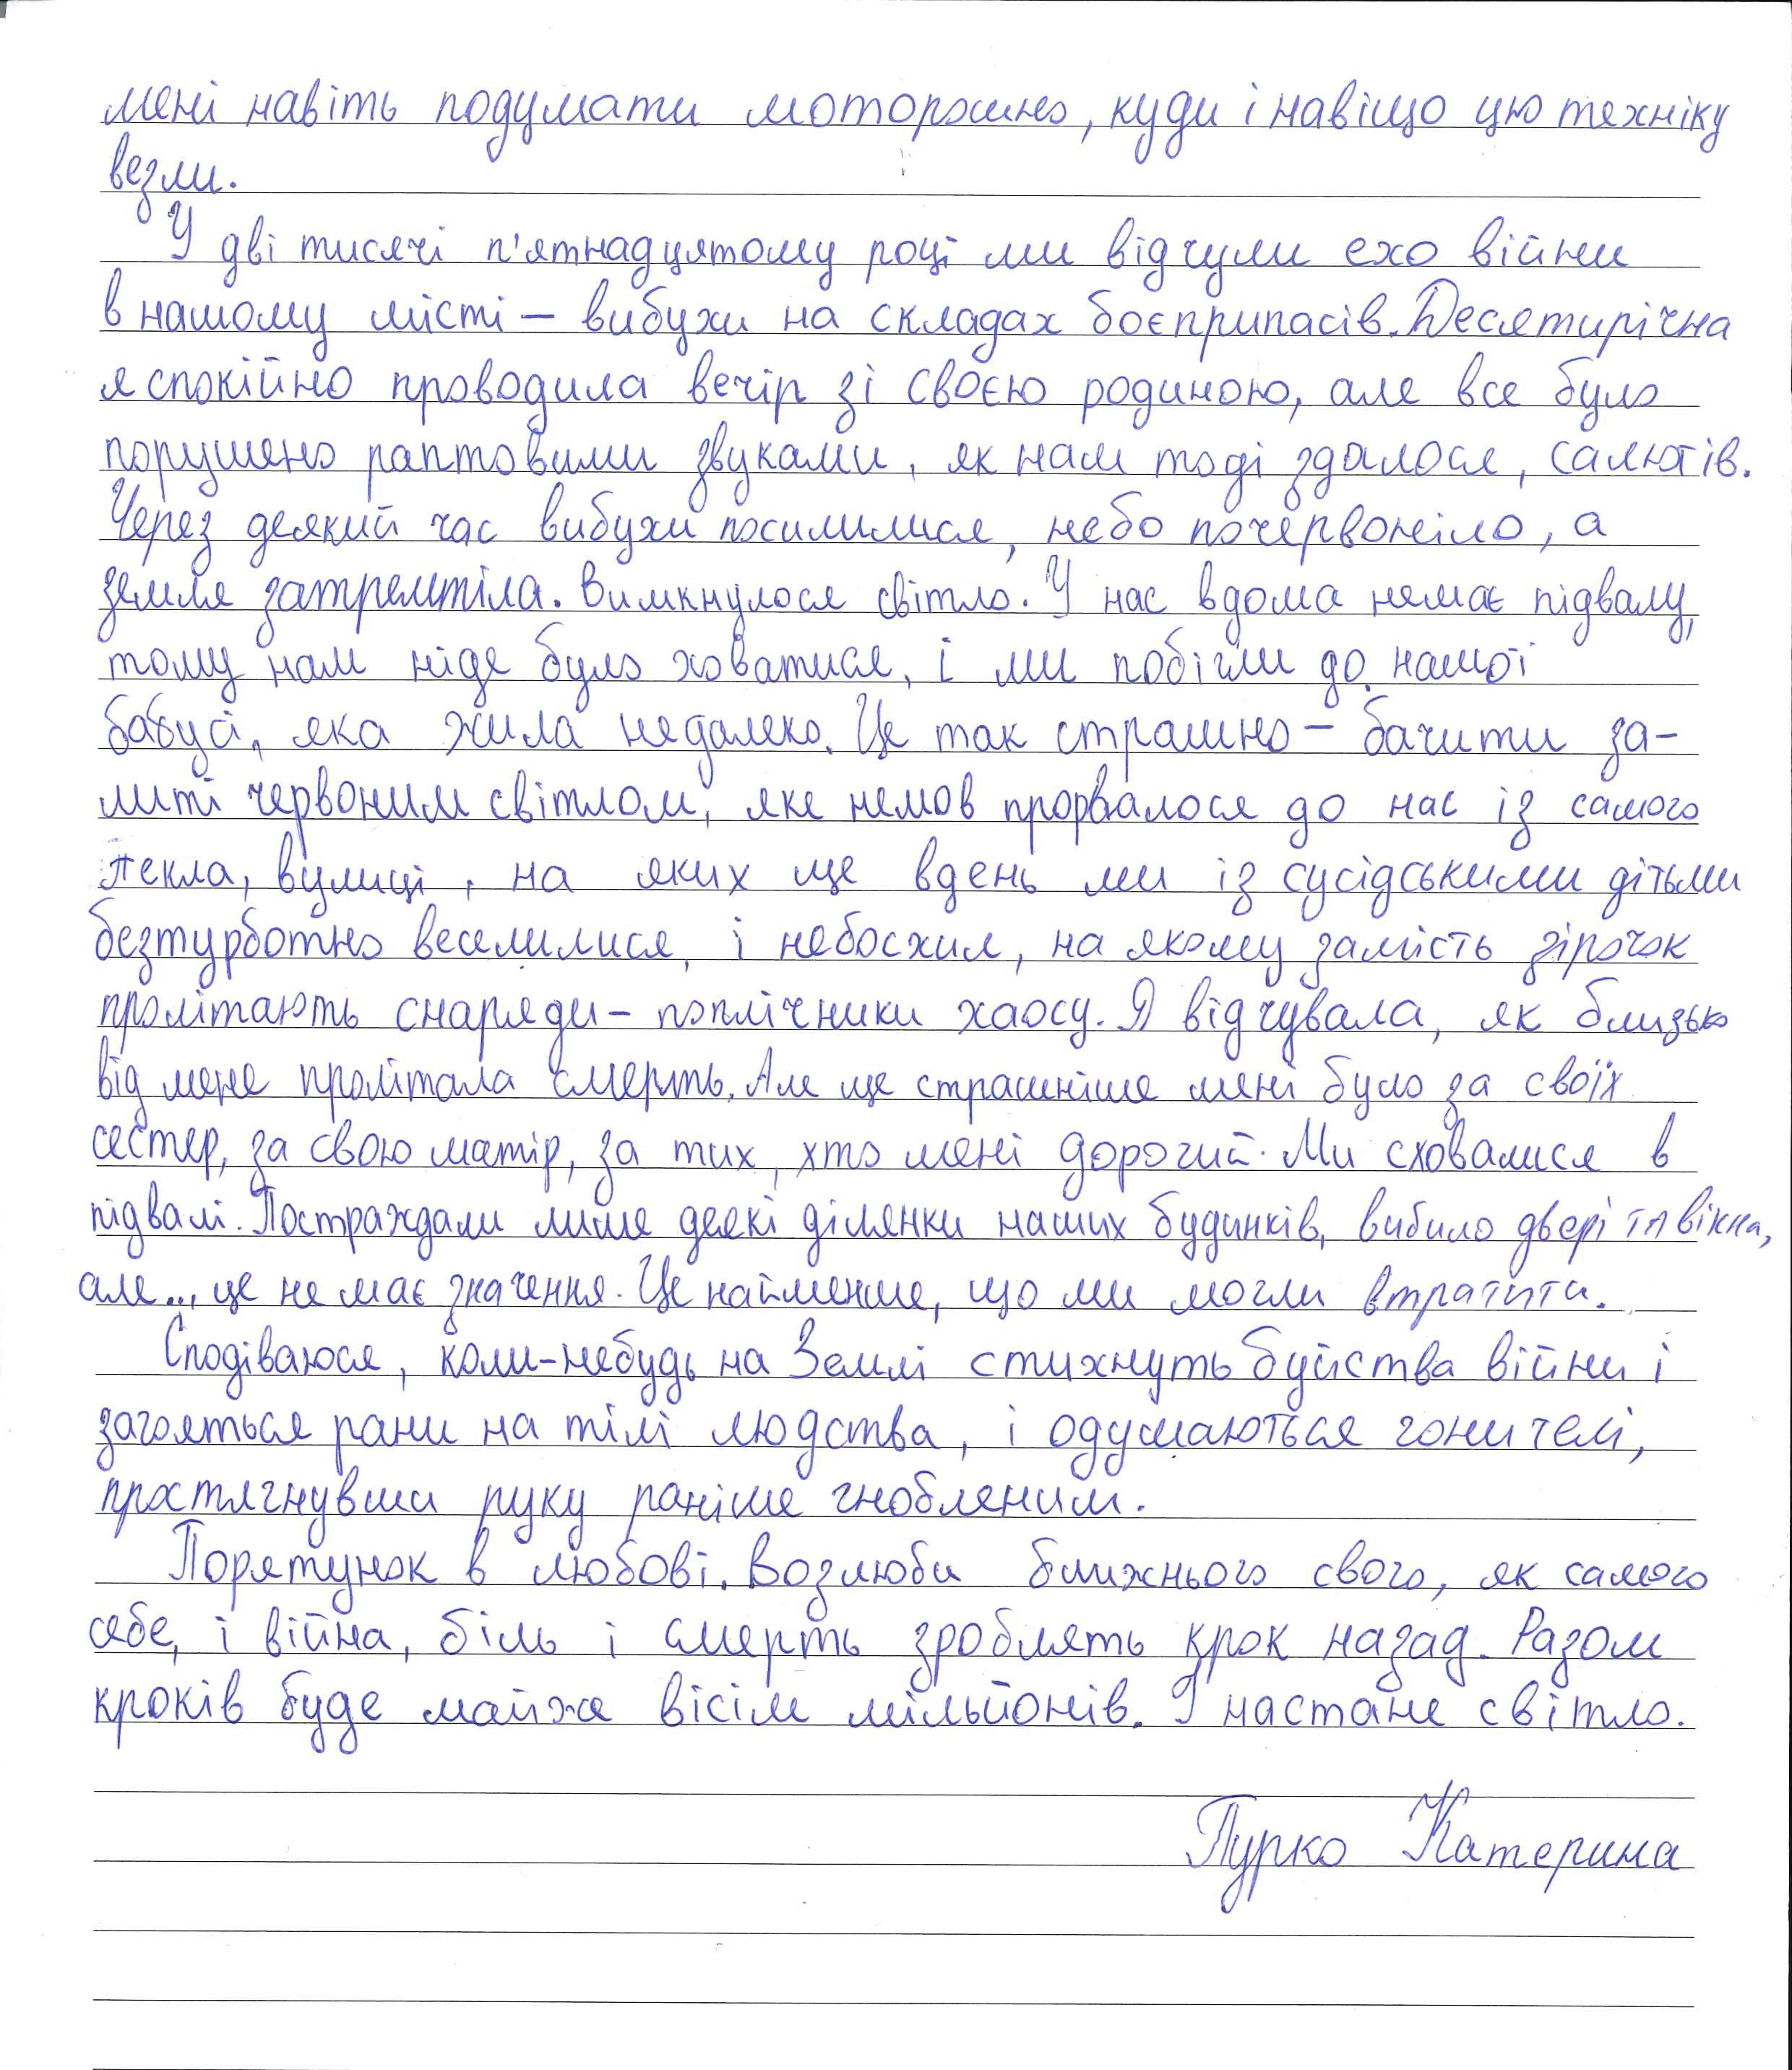 мені навіть подумати моторошно, куди і навіщо цю техніку
везли.
У дві тисячі п'ятнадцятому році ми відчули ехо війни
в нашому місті – вибухи на складах боєприпасів. Десятирічна
я спокійно проводила вечір зі своєю родиною, але все було
порушено раптовими звуками, як нам тоді здалося, салютів.
Через деякий час вибухи посилилися, небо почервоніло, а
земля затремтіла. Вимкнулося світло. У нас вдома немає підвалу,
тому нам ніде було ховатися, і ми побігли до нашої
бабусі, яка жила недалеко. Це так страшно – бачити за-
литі червоним світлом, яке немов прорвалося до нас із самого
пекла, вулиці, на яких ще вдень ми із сусідськими дітьми
безтурботно веселилися, і небосхил, на якому замість зірочок
пролітають снаряди – поплічники хаосу. Я відчувала, як близько
від мене пролітала смерть. Але ще страшніше мені було за своїх
сестер, за свою матір, за тих, хто мені дорогий. Ми сховалися в
підвалі. Постраждали лише деякі ділянки наших будинків, вибило двері та вікна,
але..., це не має значення. Це найменше, що ми могли втратити.
Сподіваюся, коли-небудь на Землі стихнуть буйства війни і
загояться рани на тілі людства, і одумаються гонителі,
простягнувши руку раніше гнобленим.
Порятунок в любові. Возлюби ближнього свого, як самого
себе, і війна, біль і смерть зроблять крок назад. Разом
кроків буде майже вісім мільйонів. І настане світло.
Пурко Катерина